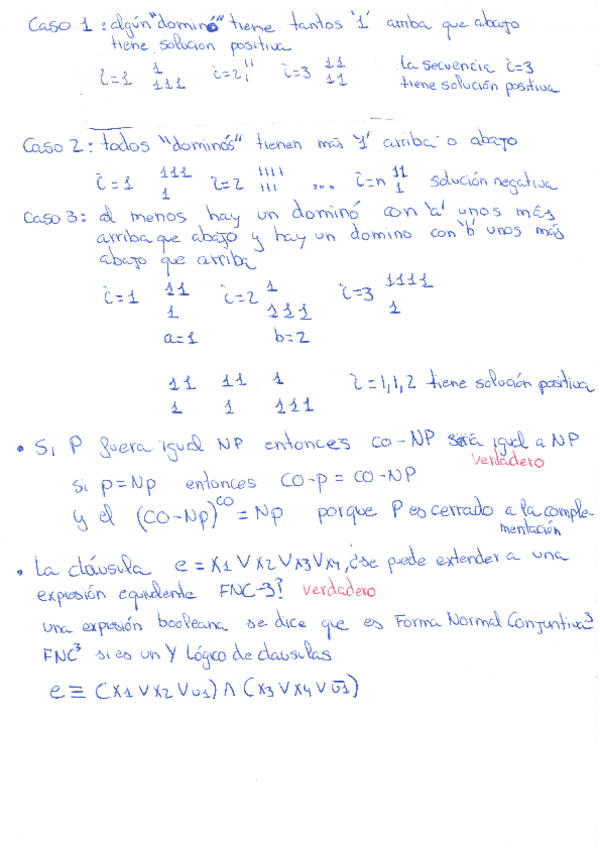 Caso 1: algún "dominó" tiene tantos '1' arriba que abajo
tiene solucion positiva
i=1 1 i=2 11 i=3 11 la secuencia i=3
111 1 11 tiene solución positiva
Caso 2: todos "dominós" tienen más '1' arriba o abajo
i=1 111 i=2 1111 ... i=n 11 solución negativa
1 111 1
Caso 3: al menos hay un dominó con 'a' unos más
arriba que abajo y hay un domino con 'b' unos más
abajo que arriba
i=1 11 i=2 1 i=3 1111
1 111 1
a=1 b=2
11 11 1 i=1,1,2 tiene solución positiva
1 1 111
• Si P fuera igual NP entonces co-NP sería igual a NP
verdadero
si p=Np entonces co-p = co-NP
y el (co-Np)^co = Np porque P es cerrado a la comple-
mentación
• La cláusula e = x1 ∨ x2 ∨ x3 ∨ x4, ¿se puede extender a una
expresión equivalente FNC-3? verdadero
una expresión booleana se dice que es Forma Normal Conjuntiva³
FNC³ si es un Y lógico de clausulas
e ≡ (x1 ∨ x2 ∨ u1) ∧ (x3 ∨ x4 ∨ u̅1)